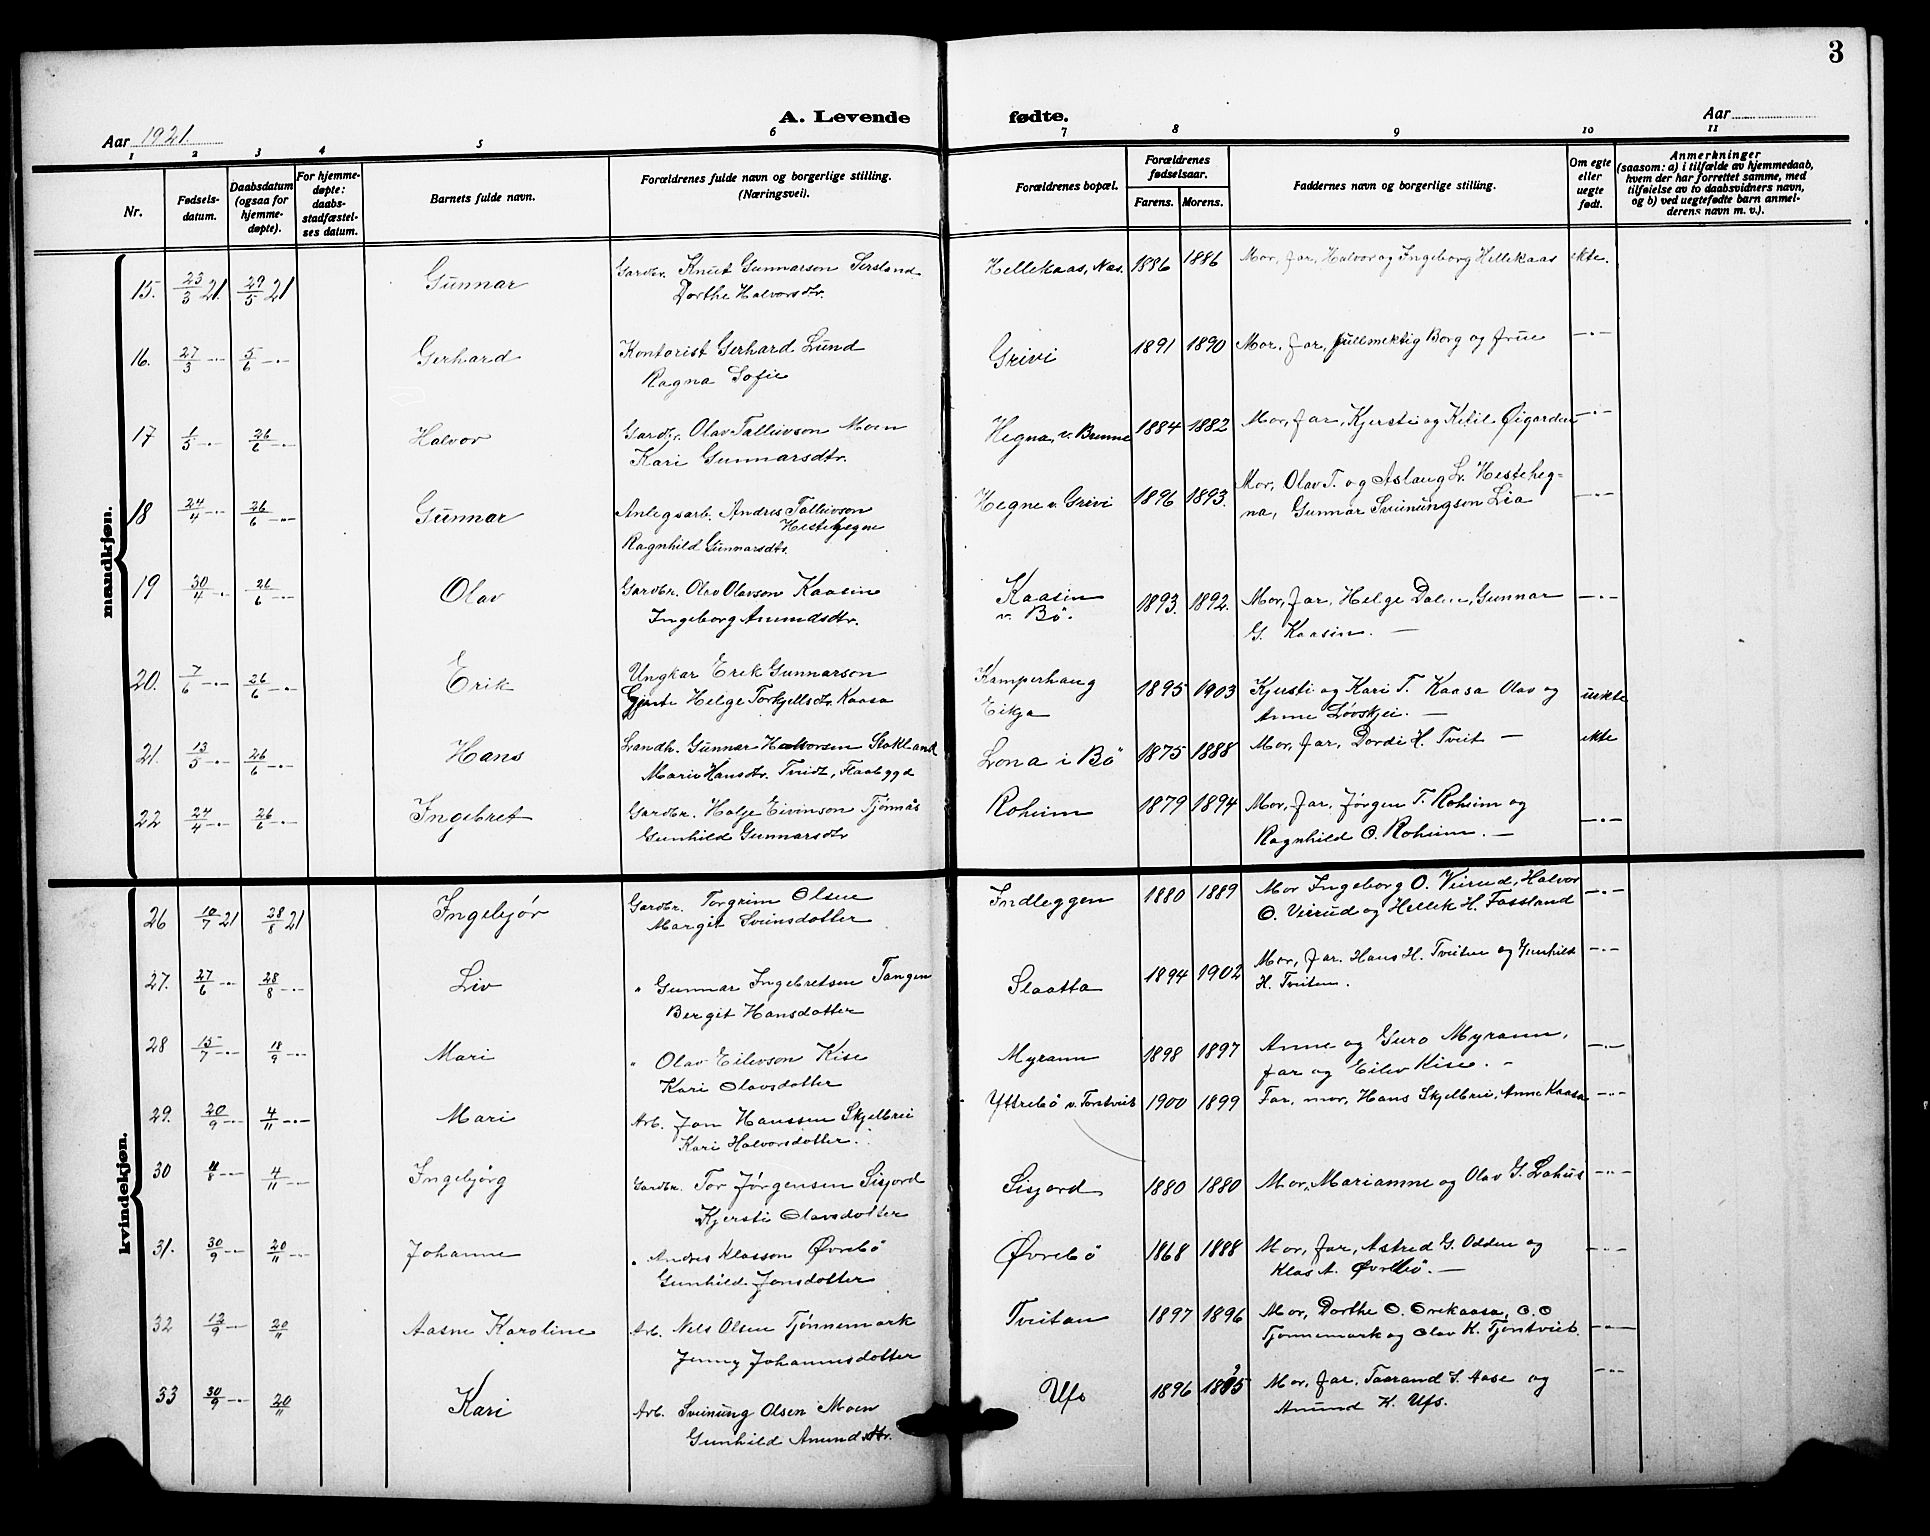 3
A. Levende fødte.
Aar 1921.
Aar
1 2 3 4 5 6 7 8 9 10 11
Nr.
Fødsels-
datum.
Daabsdatum
(ogsaa for
hjemme-
døpte).
For hjemme-
døpte:
daabs-
stadfæstel-
ses datum.
Barnets fulde navn.
Forældrenes fulde navn og borgerlige stilling.
(Næringsvei).
Forældrenes bopæl.
Forældrenes
fødselsaar.
Farens. Morens.
Faddernes navn og borgerlige stilling.
Om egte
eller
uegte
født.
Anmerkninger
(saasom: a) i tilfælde av hjemmedaab,
hvem der har forrettet samme, med
tilføielse av to daabsvidners navn,
og b) ved uegtefødte barn anmel-
derens navn m. v.).
mandkjøn.
15. 23/3 21. 29/5 21 Gunnar Gardbr. Knut Gunnarson Sersland Hellekaas, Nes. 1886 1886 Mor, far, Halvor og Ingeborg Hellekaas ekte.
Dorthe Halvorsdtr.
16. 27/3 -"- 5/6 -"- Gerhard Kontorist Gerhard Lund Grivi 1891 1890 Mor, far, fullmektig Borg og frue -"-
Ragna Sofie
17 1/5 -"- 26/6 -"- Halvor Gardbr. Olav Talleivson Moen Hegna, v. Brenne 1884 1882 Mor, far, Kjersti og Ketil Øigarden -"-
Kari Gunnarsdtr.
18 24/4 -"- 26/6 -"- Gunnar Anlegsarb. Andres Talleivson Hegne v. Grivi 1896 1893. Mor, Olav T. og Aslaug Lr. Hesteheg-
Hestehegne na, Gunnar Sveinungson Lia -"-
Ragnhild Gunnarsdtr.
19 30/4 -"- 26/6 -"- Olav Gardbr. Olav Olavson Kaasin Kaasin 1893. 1892. Mor, far, Helge Dalen, Gunnar -"-
Ingeborg Anundsdtr. v. Bö. G. Kaasin. —
20. 7/6 -"- 26/6 -"- Erik Ungkar Erik Gunnarson Kamperhaug 1895 1903 Kjersti og Kari T. Kaasa Olav og uekte
Gjente Helge Torkjellsdtr. Kaasa Eikja Anne Løvskjei. —
21. 13/5 -"- 26/6 -"- Hans Landh. Gunnar Halvorsen Stokland Lona i Bö 1875 1888 Mor, far, Dordi H. Tveit — ekte
Marie Hansdtr. Tveidt, Flaabygd
22 24/4 -"- 26/6 -"- Ingebret Gardbr. Helge Eivinson Tjønnås Roheim 1879 1894 Mor, far, Jørgen T. Roheim og
Gunhild Gunnarsdtr Ragnhild O. Roheim. — -"-
kvindekjøn.
26 10/7 21 28/8 21 Ingebjør Gardbr. Torgrim Olsen Indleggen 1880 1889 Mor Ingeborg O. Veirud, Halvor -"-
Margit Sveinsdotter O. Veirud og Hellek H. Fossland
27. 27/6 -"- 28/8 -"- Liv " Gunnar Ingebretsen Tangen Slaatta 1894 1902 Mor, far, Hans H. Tveiten og Gunhild -"-
Bergit Hansdotter H. Tveiten.
28 15/7 -"- 18/9 -"- Mari " Olav Eilevson Kise Myrann 1898 1897 Anne og Guro Myrann, -"-
Kari Olavsdotter far og Eilev Kise. -
29. 20/9 -"- 4/11 -"- Mari Arb. Jon Hanssen Skjelbrei Yttrebö v. Torstveit 1900 1899 Far, mor, Hans Skjelbrei, Anne Kaasa -"-
Kari Halvorsdotter.
30 4/8 -"- 4/11 -"- Ingebjørg Gardbr. Tor Jörgensen Sisjord Sisjord 1880 1880 Mor, Marianne og Olav G. Lohus -"-
Kjersti Olavsdotter
31. 30/9 -"- 20/11 -"- Johanne " Andres Klasson Øvrebö Øvrebö 1868 1888 Mor, far, Astrid G. Odden og -"-
Gunhild Jonsdotter Klas A. Øvrebö. —
32 12/9 -"- 20/11 Aasne Karoline Arb. Nils Olsen Tjønnemark Tveitan 1897 1896 Mor, Dorthe O. Orekaasa, O. O
Jenny Johannesdotter Tjønnemark og Olav K. Tjørstveit. -"-
33 30/9 -"- 20/11 Kari Arb. Sveinung Olsen Moen Ufs 1896 1895 Mor, far, Taarand S. Aase og -"-
Gunhild Anundsdtr. Anund K. Ufs.